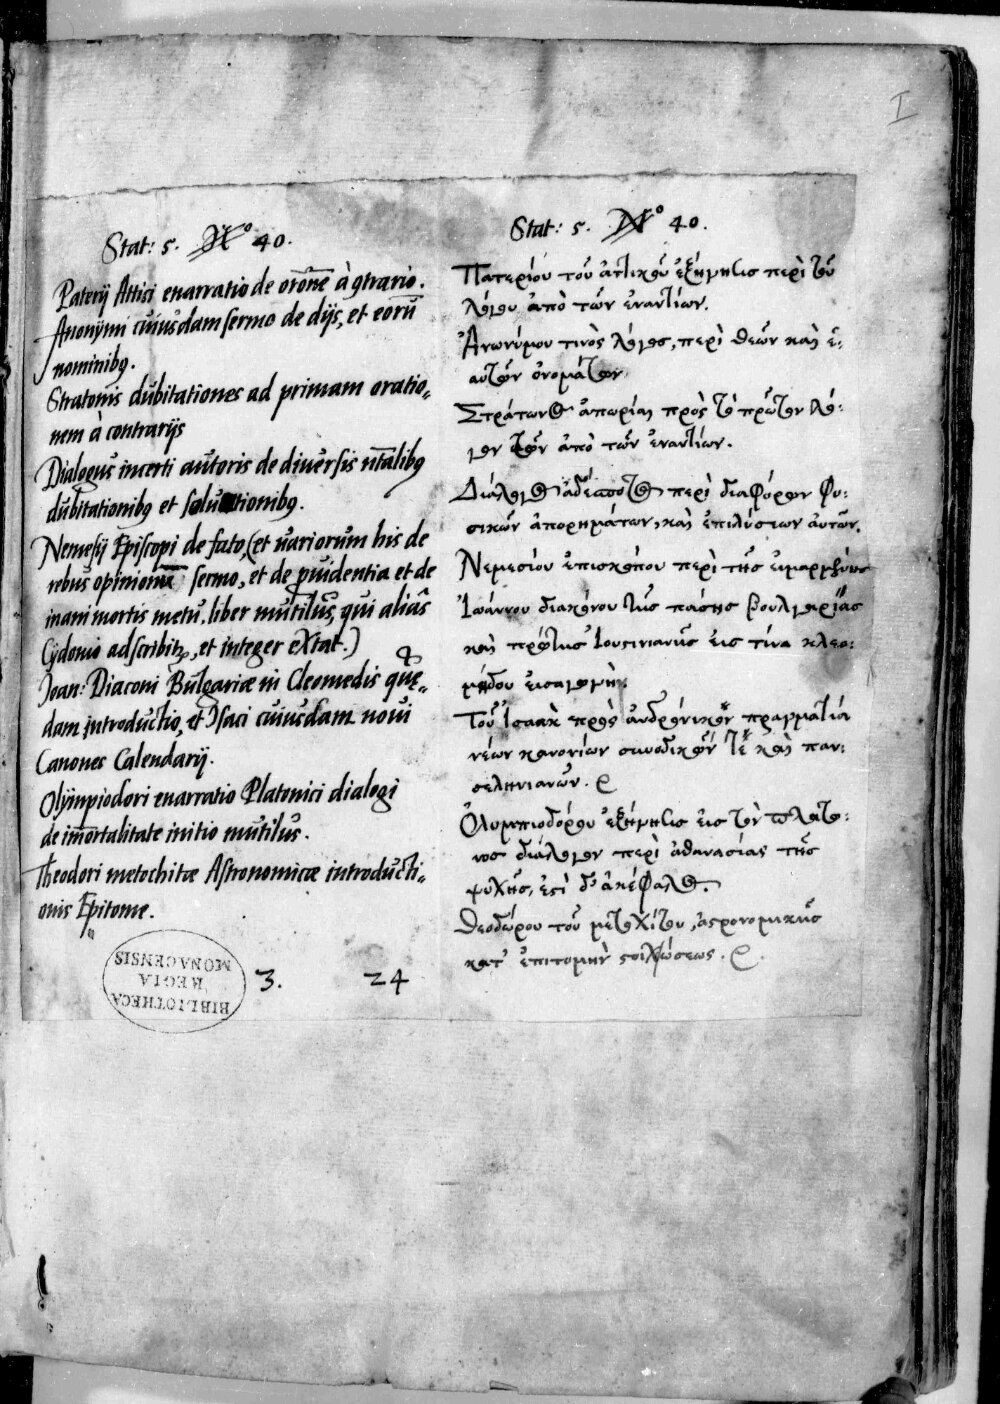 I
Stat: 5. N° 40.
Paterij Attici enarratio de orōne à ꝯtrario.
Anonymi cuiusdam sermo de dijs, et eorū
nominibꝯ.
Stratonis dubitationes ad primam oratio„
nem à contrarijs
Dialogus incerti autoris de diuersis nt̄alibꝯ
dubitationibꝯ et solutionibꝯ.
Nemesij Episcopi de fato, (et uariorum his de
rebus opinionū sermo, et de ꝓuidentia et de
inani mortis metu, liber mutilus, qui aliâs
Cydonio adscribitꝶ, et integer extat.)
Joan: Diaconi Bulgariæ in Cleomedis quę„
dam introductio, et Isaci cuiusdam noui
Canones Calendarij.
Olympiodori enarratio Platonici dialogi
de im̄ortalitate initio mutilus.
Theodori metochitæ Astronomicæ introducti„
onis Epitome.
BIBLIOTHECA
REGIA
MONACENSIS
3. 24
Stat: 5. N° 40.
Πατερίου τοῦ ἀττικοῦ ἐξήγησις περὶ τοῦ
λόγου ἀπὸ τῶν ἐναντίων.
Ἀνωνύμου τινὸς λόγος, περὶ θεῶν καὶ ἑ:
αυτῶν ὀνομάτων.
Στράτωνος ἀπορίαι πρὸς τὸ πρῶτον λό:
γον τῶν ἀπὸ τῶν ἐναντίων.
Διάλογος ἀδέσποτος περὶ διαφόρων φυ:
σικῶν ἀπορημάτων, καὶ ἐπιλύσεων αὐτῶν.
Νεμεσίου ἐπισκόπου περὶ τῆς εἱμαρμένης
Ἰωάννου διακόνου τῆς πάσης βουλγαρίας
καὶ πρώτης Ἰουστινιανῆς εἰς τίνα κλεο:
μήδου εἰσαγωγήν.
Τοῦ Ἰσαὰκ πρὸς ἀνδρόνικον πραγματία
νέων κανονίων συνοδικῶν τὲ καὶ παν:
σεληνιανῶν.
Ὀλυμπιοδόρου ἐξήγησις εἰς τὸν πλάτω:
νος διάλογον περὶ ἀθανασίας τῆς
ψυχῆς, ἐστὶ δ' ἀκέφαλος.
Θεοδώρου τοῦ μετοχίτου, ἀστρονομικῆς
κατ' ἐπιτομὴν στοιχιώσεως.